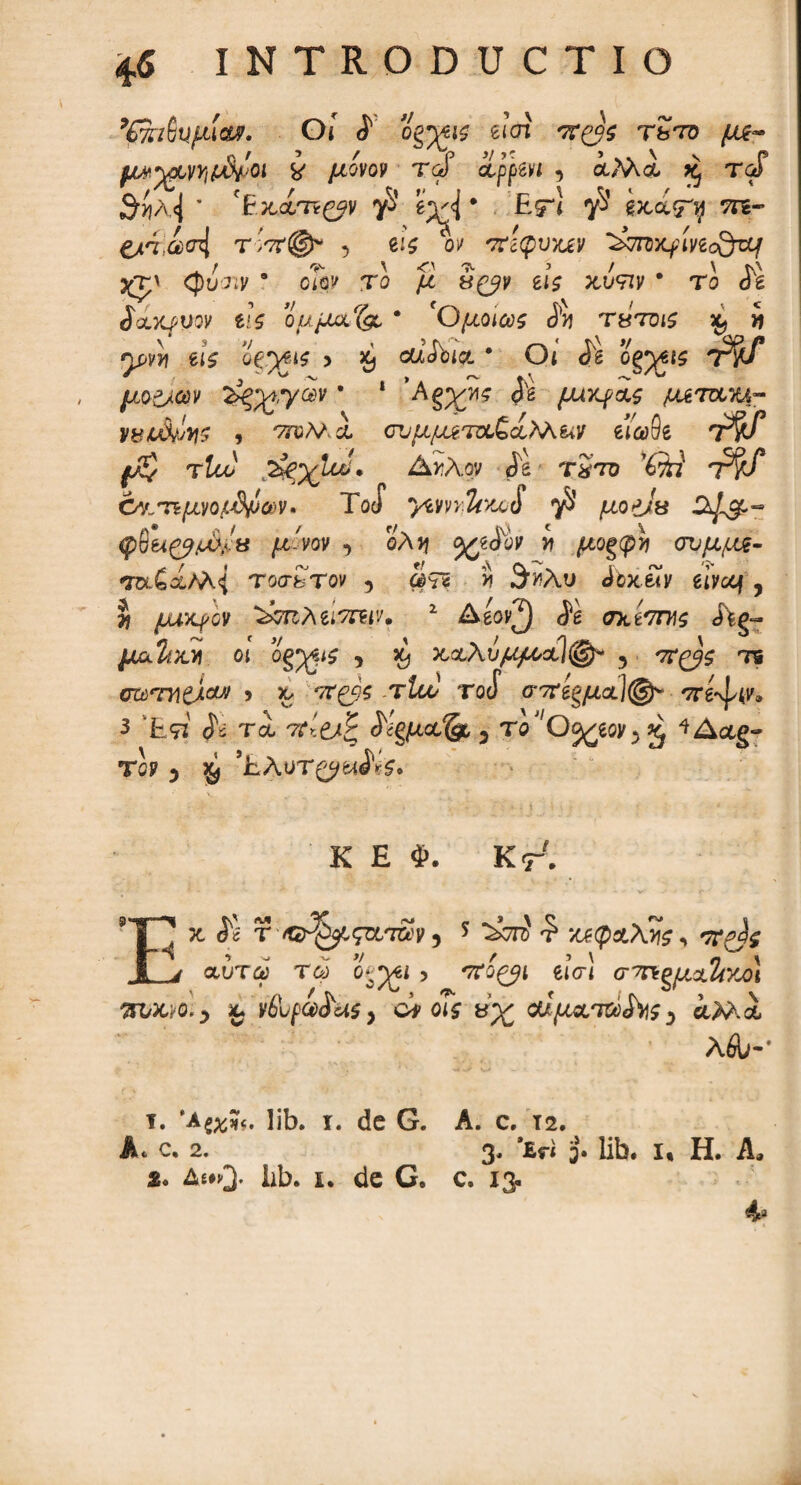 46 INTRODUCTIO
ἐπιθυμίαν. Οἱ δ' ὄρχεις εἰσὶ πρὸς τοῦτο με-
μηχανημένοι οὐ μόνον τῷ ἄρρενι, ἀλλὰ καὶ τῷ
θήλει· Ἑκάτερον γὰρ ἔχει· Ἔστι γὰρ ἑκάστῃ πε-
ριτίώσει τόπος, εἰς ὃν πέφυκεν ἀποκρίνεσθαι
κατὰ φύσιν· οἷον τὸ μὲν οὖρον εἰς κύστιν· τὸ δὲ
δάκρυον εἰς ὄμματα· Ὁμοίως δὴ τούτοις καὶ ἡ
γονὴ εἰς ὄρχεις, καὶ αἰδοῖα· Οἱ δὲ ὄρχεις τῶν
μορίων ἀρχηγῶν· ¹ Ἀρχῆς δὲ μικρᾶς μετακι-
νουμένης, πολλὰ συμμεταβάλλειν εἴωθε τῶν
μετὰ τὴν ἀρχήν. Δῆλον δὲ τοῦτο ἐπὶ τῶν
ἐκτεμνομένων. Τοῦ γεννητικοῦ γὰρ μορίου δια-
φθειρομένου μόνον, ὅλη σχεδὸν ἡ μορφὴ συμμε-
ταβάλλει τοσοῦτον, ὥστε ἢ θῆλυ δοκεῖν εἶναι,
ἢ μικρὸν ἀπολείπειν. ² Δέονται δὲ σκέπης δερ-
ματικῆ οἱ ὄρχεις, καὶ καλύμματος, πρὸς τε
σωτηρίαν, καὶ πρὸς τὴν τοῦ σπέρματος πέψιν.
3 Ἔστι δὲ τὰ πέριξ δέρματα, τὸ Ὄσχεον, καὶ ⁴ Δαρ-
τὸν, καὶ Ἐλυτροειδές.
ΚΕΦ. Κϛ'.
Ἐκ δὲ τῶν παραστατῶν, ⁵ ἀπὸ τῆς κεφαλῆς, πρὸς
αὐτῷ τῷ ὄρχει, πόροι εἰσὶ σπερματικοὶ
πυκνοὶ, καὶ νευρώδεις, ἐν οἷς οὐχ αἱματώδης, ἀλλὰ
λευ-
1. Ἀρχῆς. lib. 1. de G. A. c. 12.
A. c. 2. 3. Ἔστι δ. lib. 1. H. A.
2. Δέονται. lib. 1. de G. c. 13.
4.